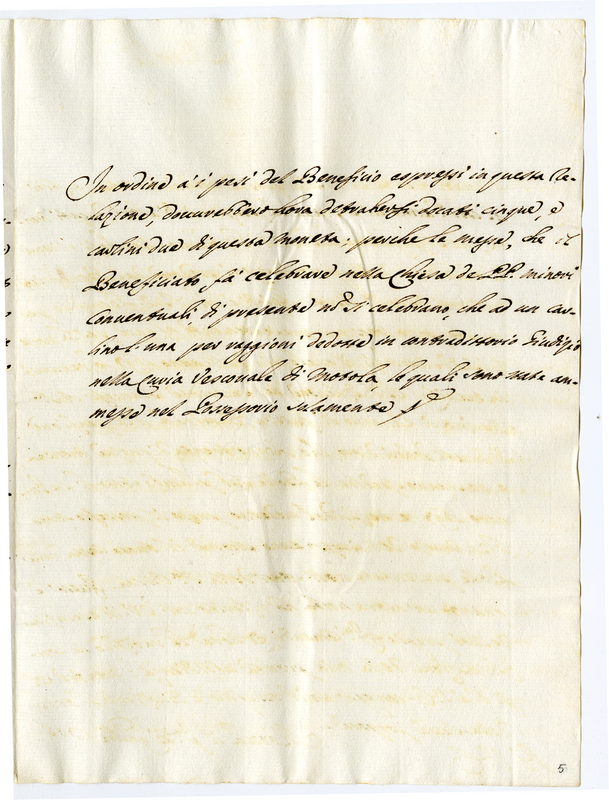 In ordine à i pesi del Beneficio espressi in questa Re-
lazione, doverebbero hora detraherssi docati cinque, e
carlini due di questa moneta; perche le messe, che il
Beneficiato fà celebrare nella Chiesa de PP. minori
Conventuali, di presente nõ si celebrano, che ad un car-
lino l'una per raggioni dedotte in contradittorio Giudizio
nella Curia Vescovale di Motola, le quali sono state am-
messe nel Possessorio solamente
5